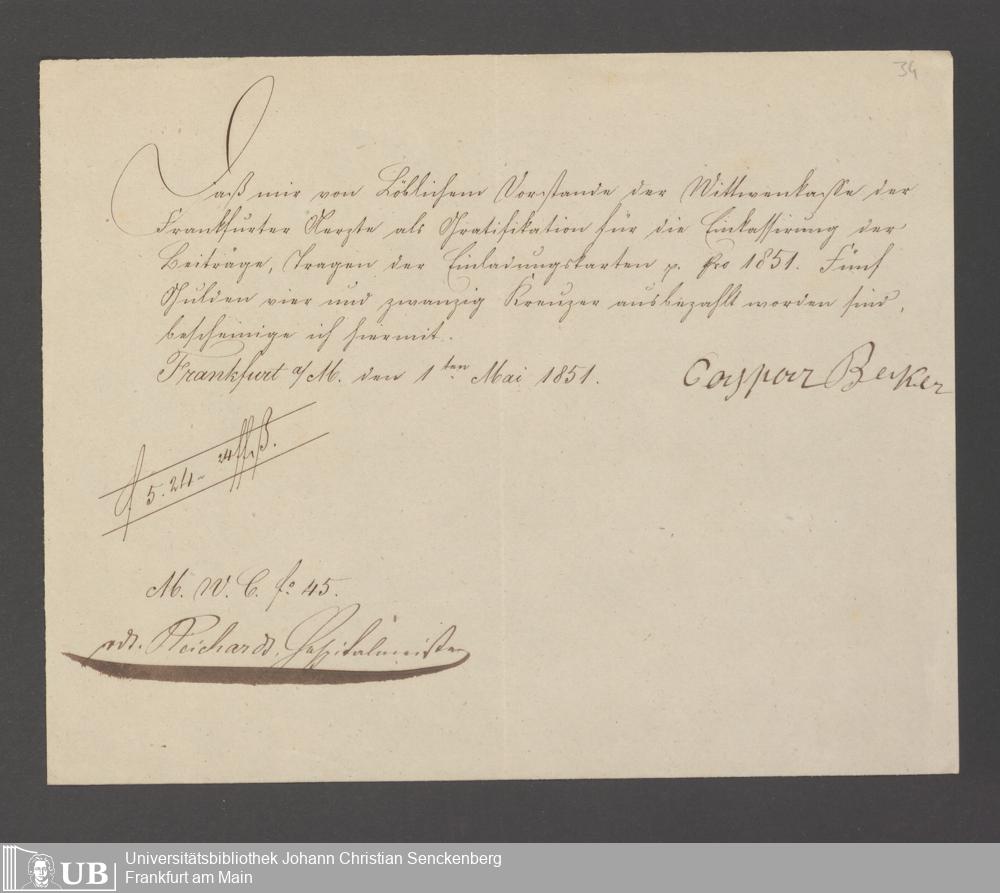 34
Daß mir von Löblichem Vorstande der Wittwenkasse der
Frankfurter Aerzte als Gratifikation für die Einkassirung der
Beiträge, Tragen der Einladungskarten p. pro 1851. Fünf
Gulden vier und zwanzig Kreuzer ausbezahlt worden sind,
bescheinige ich hiermit.
Frankfurt a/M. den 1ten Mai 1851. Caspar Beker
f 5. 24
M. W. C. fo 45.
Reichard, Hospitalmeister
UB Universitätsbibliothek Johann Christian Senckenberg
Frankfurt am Main